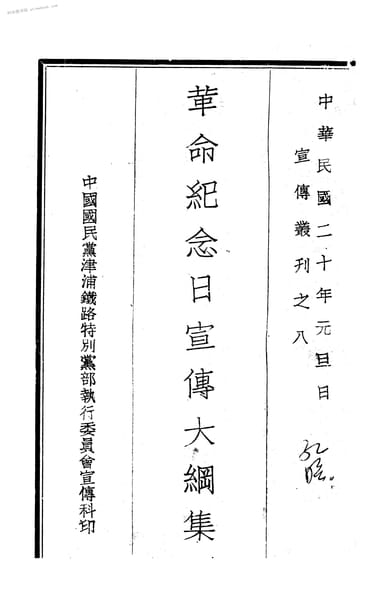 中華民國二十年元旦日
宣傳叢刊之八
革命紀念日宣傳大綱集
中國國民黨津浦鐵路特別黨部執行委員會宣傳科印